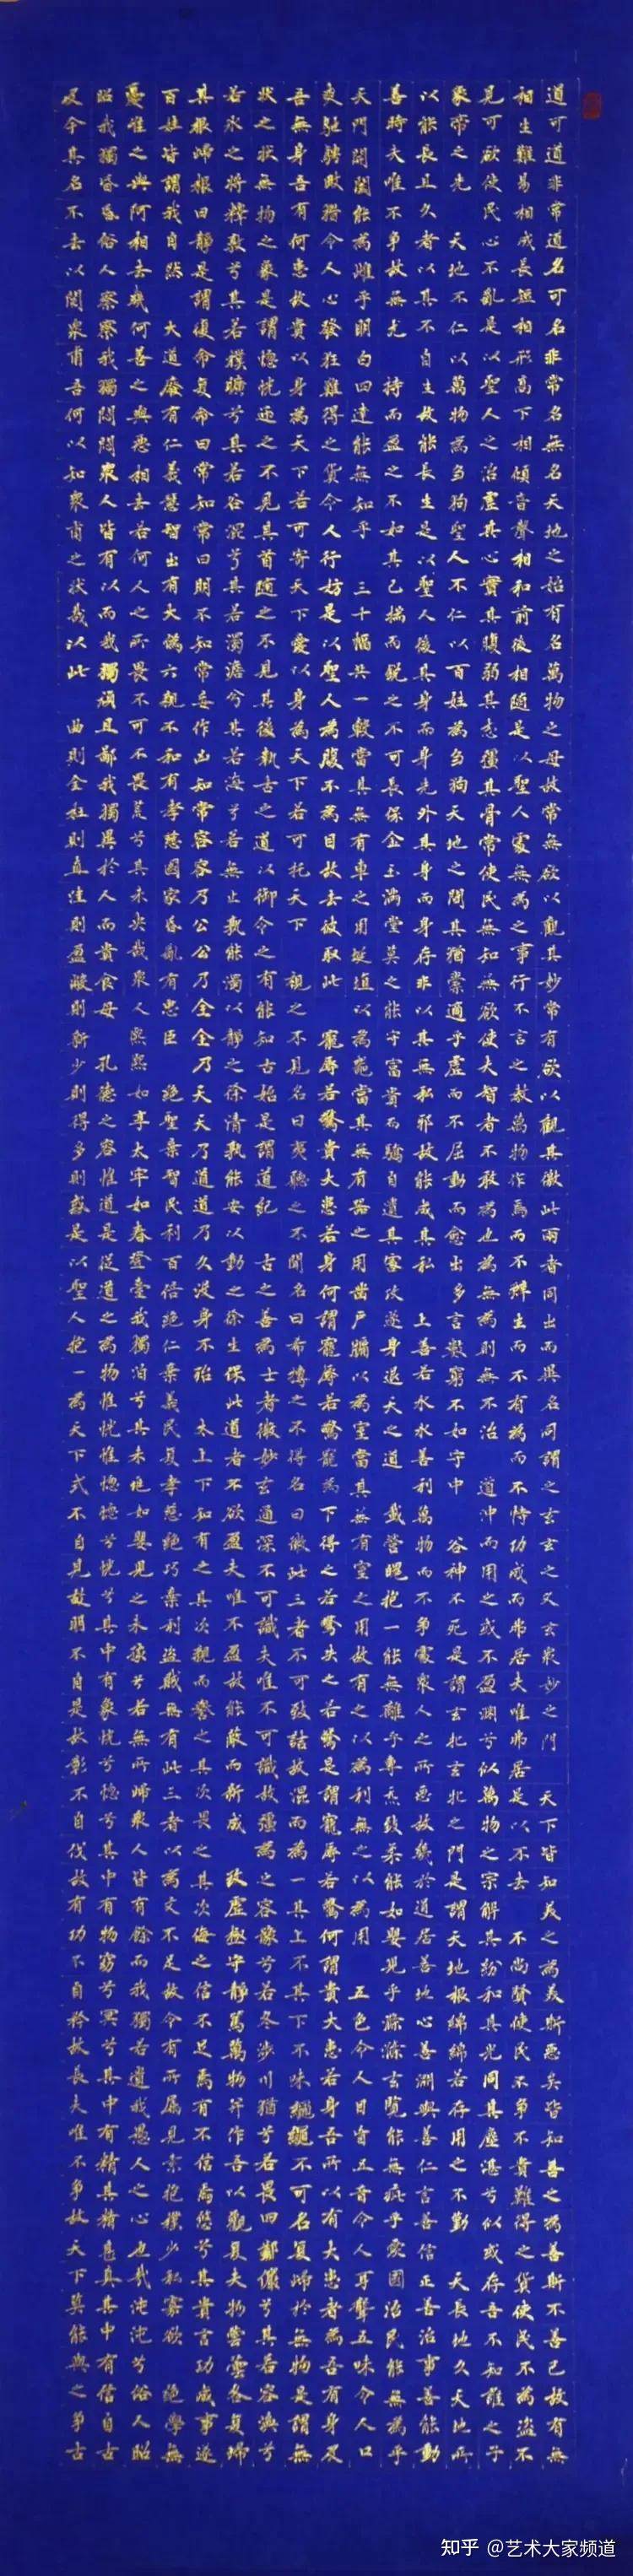 道可道非常道名可名非常名無名天地之始有名萬物之母故常無欲以觀其妙常有欲以觀其徼此兩者同出而異名同謂之玄玄之又玄眾妙之門 天下皆知美之為美斯惡矣皆知善之為善斯不善已故有無
相生難易相成長短相形高下相傾音聲相和前後相隨是以聖人處無為之事行不言之教萬物作焉而不辭生而不有為而不恃功成而弗居夫唯弗居是以不去 不尚賢使民不爭不貴難得之貨使民不為盜不
見可欲使民心不亂是以聖人之治虛其心實其腹弱其志強其骨常使民無知無欲使夫智者不敢為也為無為則無不治 道沖而用之或不盈淵兮似萬物之宗解其紛和其光同其塵湛兮似或存吾不知誰之子
象帝之先 天地不仁以萬物為芻狗聖人不仁以百姓為芻狗天地之間其猶橐乎虛而不屈動而愈出多言數窮不如守中 谷神不死是謂玄牝玄牝之門是謂天地根綿綿若存用之不勤 天長地久天地所
以能長且久者以其不自生故能長生是以聖人後其身而身先外其身而身存非以其無私邪故能成其私 上善若水水善利萬物而不爭處眾人之所惡故幾於道居善地心善淵與善仁言善信正善治事善能動
善時夫唯不爭故無尤 持而盈之不如其已揣而銳之不可長保金玉滿堂莫之能守富貴而驕自遺其咎功遂身退天之道 載營魄抱一能無離乎專氣致柔能如嬰兒乎滌除玄覽能無疵乎愛國治民能無為乎
天門開闔能為雌乎明白四達能無知乎 三十輻共一轂當其無有車之用埏埴以為器當其無有器之用鑿戶牖以為室當其無有室之用故有之以為利無之以為用 五色令人目盲五音令人耳聾五味令人口
爽馳騁畋獵令人心發狂難得之貨令人行妨是以聖人為腹不為目故去彼取此 寵辱若驚貴大患若身何謂寵辱若驚寵為下得之若驚失之若驚是謂寵辱若驚何謂貴大患若身吾所以有大患者為吾有身及
吾無身吾有何患故貴以身為天下若可寄天下愛以身為天下若可托天下 視之不見名曰夷聽之不聞名曰希搏之不得名曰微此三者不可致詰故混而為一其上不其下不昧繩繩不可名复歸於無物是謂無
狀之狀無物之象是謂惚恍迎之不見其首隨之不見其後執古之道以御今之有能知古始是謂道紀 古之善為士者微妙玄通深不可識夫唯不可識故強為之容豫兮若冬涉川猶兮若畏四鄰儼兮其若容渙兮
若冰之將釋敦兮其若樸曠兮其若谷混兮其若濁澹兮其若海兮若無止孰能濁以靜之徐清孰能安以動之徐生保此道者不欲盈夫唯不盈故能蔽而新成 致虛極守靜篤萬物并作吾以觀复夫物芸芸各复歸
其根歸根曰靜是謂復命复命曰常知常曰明不知常妄作凶知常容容乃公公乃全全乃天天乃道道乃久沒身不殆 太上下知有之其次親而譽之其次畏之其次侮之信不足焉有不信焉悠兮其貴言功成事遂
百姓皆謂我自然 大道廢有仁義慧智出有大偽六親不和有孝慈國家昏亂有忠臣 絕聖棄智民利百倍絕仁棄義民复孝慈絕巧棄利盜賊無有此三者以為文不足故令有所屬見素抱樸少私寡欲 絕學無
憂唯之與阿相去幾何善之與惡相去若何人之所畏不可不畏荒兮其未央哉眾人熙熙如享太牢如春登臺我獨泊兮其未兆如嬰兒之未孩兮若無所歸眾人皆有餘而我獨若遺我愚人之心也哉沌沌兮俗人昭
昭我獨昏昏俗人察察我獨悶悶眾人皆有以而我獨頑且鄙我獨異於人而貴食母 孔德之容惟道是從道之為物惟恍惟惚惚兮恍兮其中有象恍兮惚兮其中有物窈兮冥兮其中有精其精甚真其中有信自古
及今其名不去以閱眾甫吾何以知眾甫之狀哉以此 曲則全枉則直窪則盈敝則新少則得多則惑是以聖人抱一為天下式不自見故明不自是故彰不自伐故有功不自矜故長夫唯不爭故天下莫能與之爭古
知乎 @艺术大家频道